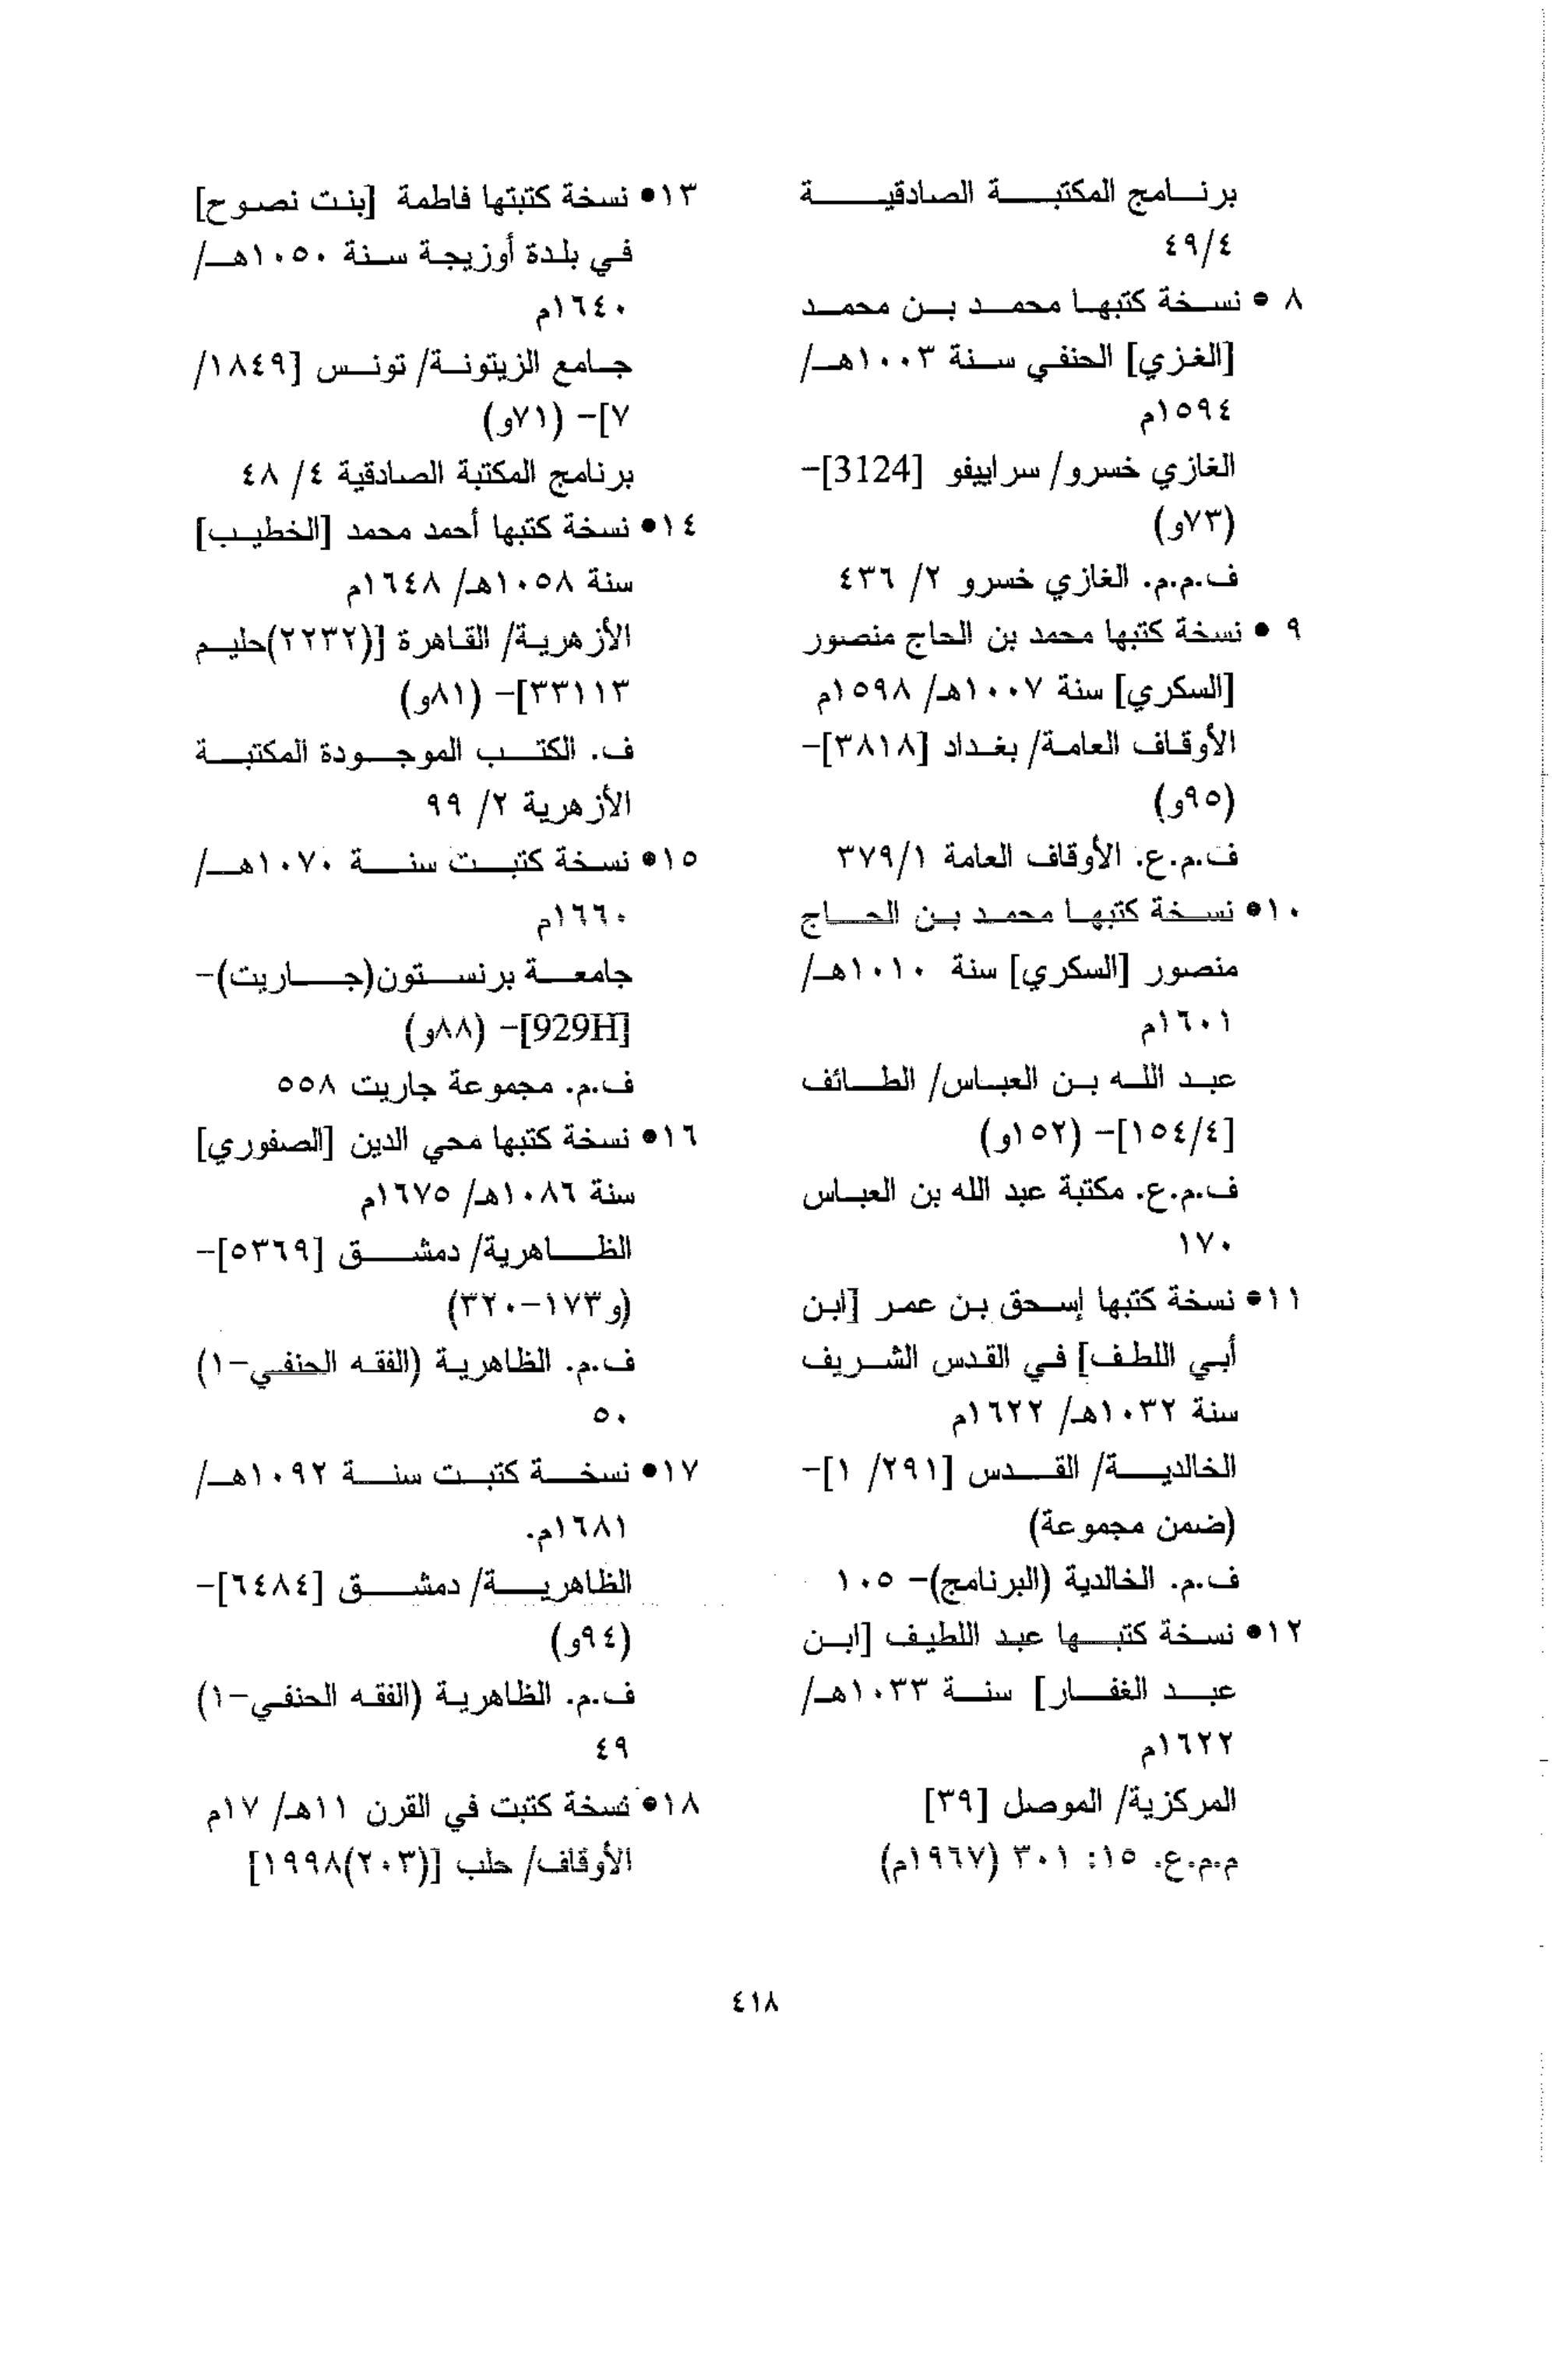 برنامج المكتبة الصادقية
٤٩/٤
٨ • نسخة كتبها محمد بن محمد
[الغزي] الحنفي سنة ١٠٠٣هـ/
١٥٩٤م
الغازي خسرو/ سراييفو [3124]-
(٧٣و)
ف.م.م. الغازي خسرو ٢/ ٤٣٦
٩ • نسخة كتبها محمد بن الحاج منصور
[السكري] سنة ١٠٠٧هـ/ ١٥٩٨م
الأوقاف العامة/ بغداد [٣٨١٨]-
(٩٥و)
ف.م.ع. الأوقاف العامة ٣٧٩/١
١٠• نسخة كتبها محمد بن الحاج
منصور [السكري] سنة ١٠١٠هـ/
١٦٠١م
عبد الله بن العباس/ الطائف
[١٥٤/٤]- (١٥٢و)
ف.م.ع. مكتبة عبد الله بن العباس
١٧٠
١١• نسخة كتبها إسحق بن عمر [ابن
أبي اللطف] في القدس الشريف
سنة ١٠٣٢هـ/ ١٦٢٢م
الخالدية/ القدس [٢٩١/ ١]-
(ضمن مجموعة)
ف.م. الخالدية (البرنامج)- ١٠٥
١٢• نسخة كتبها عبد اللطيف [ابن
عبد الغفار] سنة ١٠٣٣هـ/
١٦٢٢م
المركزية/ الموصل [٣٩]
م.م.ع. ١٥: ٣٠١ (١٩٦٧م)
١٣• نسخة كتبتها فاطمة [بنت نصوح]
في بلدة أوزيجة سنة ١٠٥٠هـ/
١٦٤٠م
جامع الزيتونة/ تونس [١٨٤٩/
٧]- (٧١و)
برنامج المكتبة الصادقية ٤/ ٤٨
١٤• نسخة كتبها أحمد محمد [الخطيب]
سنة ١٠٥٨هـ/ ١٦٤٨م
الأزهرية/ القاهرة [(٢٢٣٢)حليم
٣٣١١٣]- (٨١و)
ف. الكتب الموجودة المكتبة
الأزهرية ٢/ ٩٩
١٥• نسخة كتبت سنة ١٠٧٠هـ/
١٦٦٠م
جامعة برنستون(جاريت)-
[929H]- (٨٨و)
ف.م. مجموعة جاريت ٥٥٨
١٦• نسخة كتبها محي الدين [الصفوري]
سنة ١٠٨٦هـ/ ١٦٧٥م
الظاهرية/ دمشق [٥٣٦٩]-
(و١٧٣-٣٢٠)
ف.م. الظاهرية (الفقه الحنفي-١)
٥٠
١٧• نسخة كتبت سنة ١٠٩٢هـ/
١٦٨١م.
الظاهرية/ دمشق [٦٤٨٤]-
(٩٤و)
ف.م. الظاهرية (الفقه الحنفي-١)
٤٩
١٨• نسخة كتبت في القرن ١١هـ/ ١٧م
الأوقاف/ حلب [(٢٠٣)١٩٩٨]
٤١٨